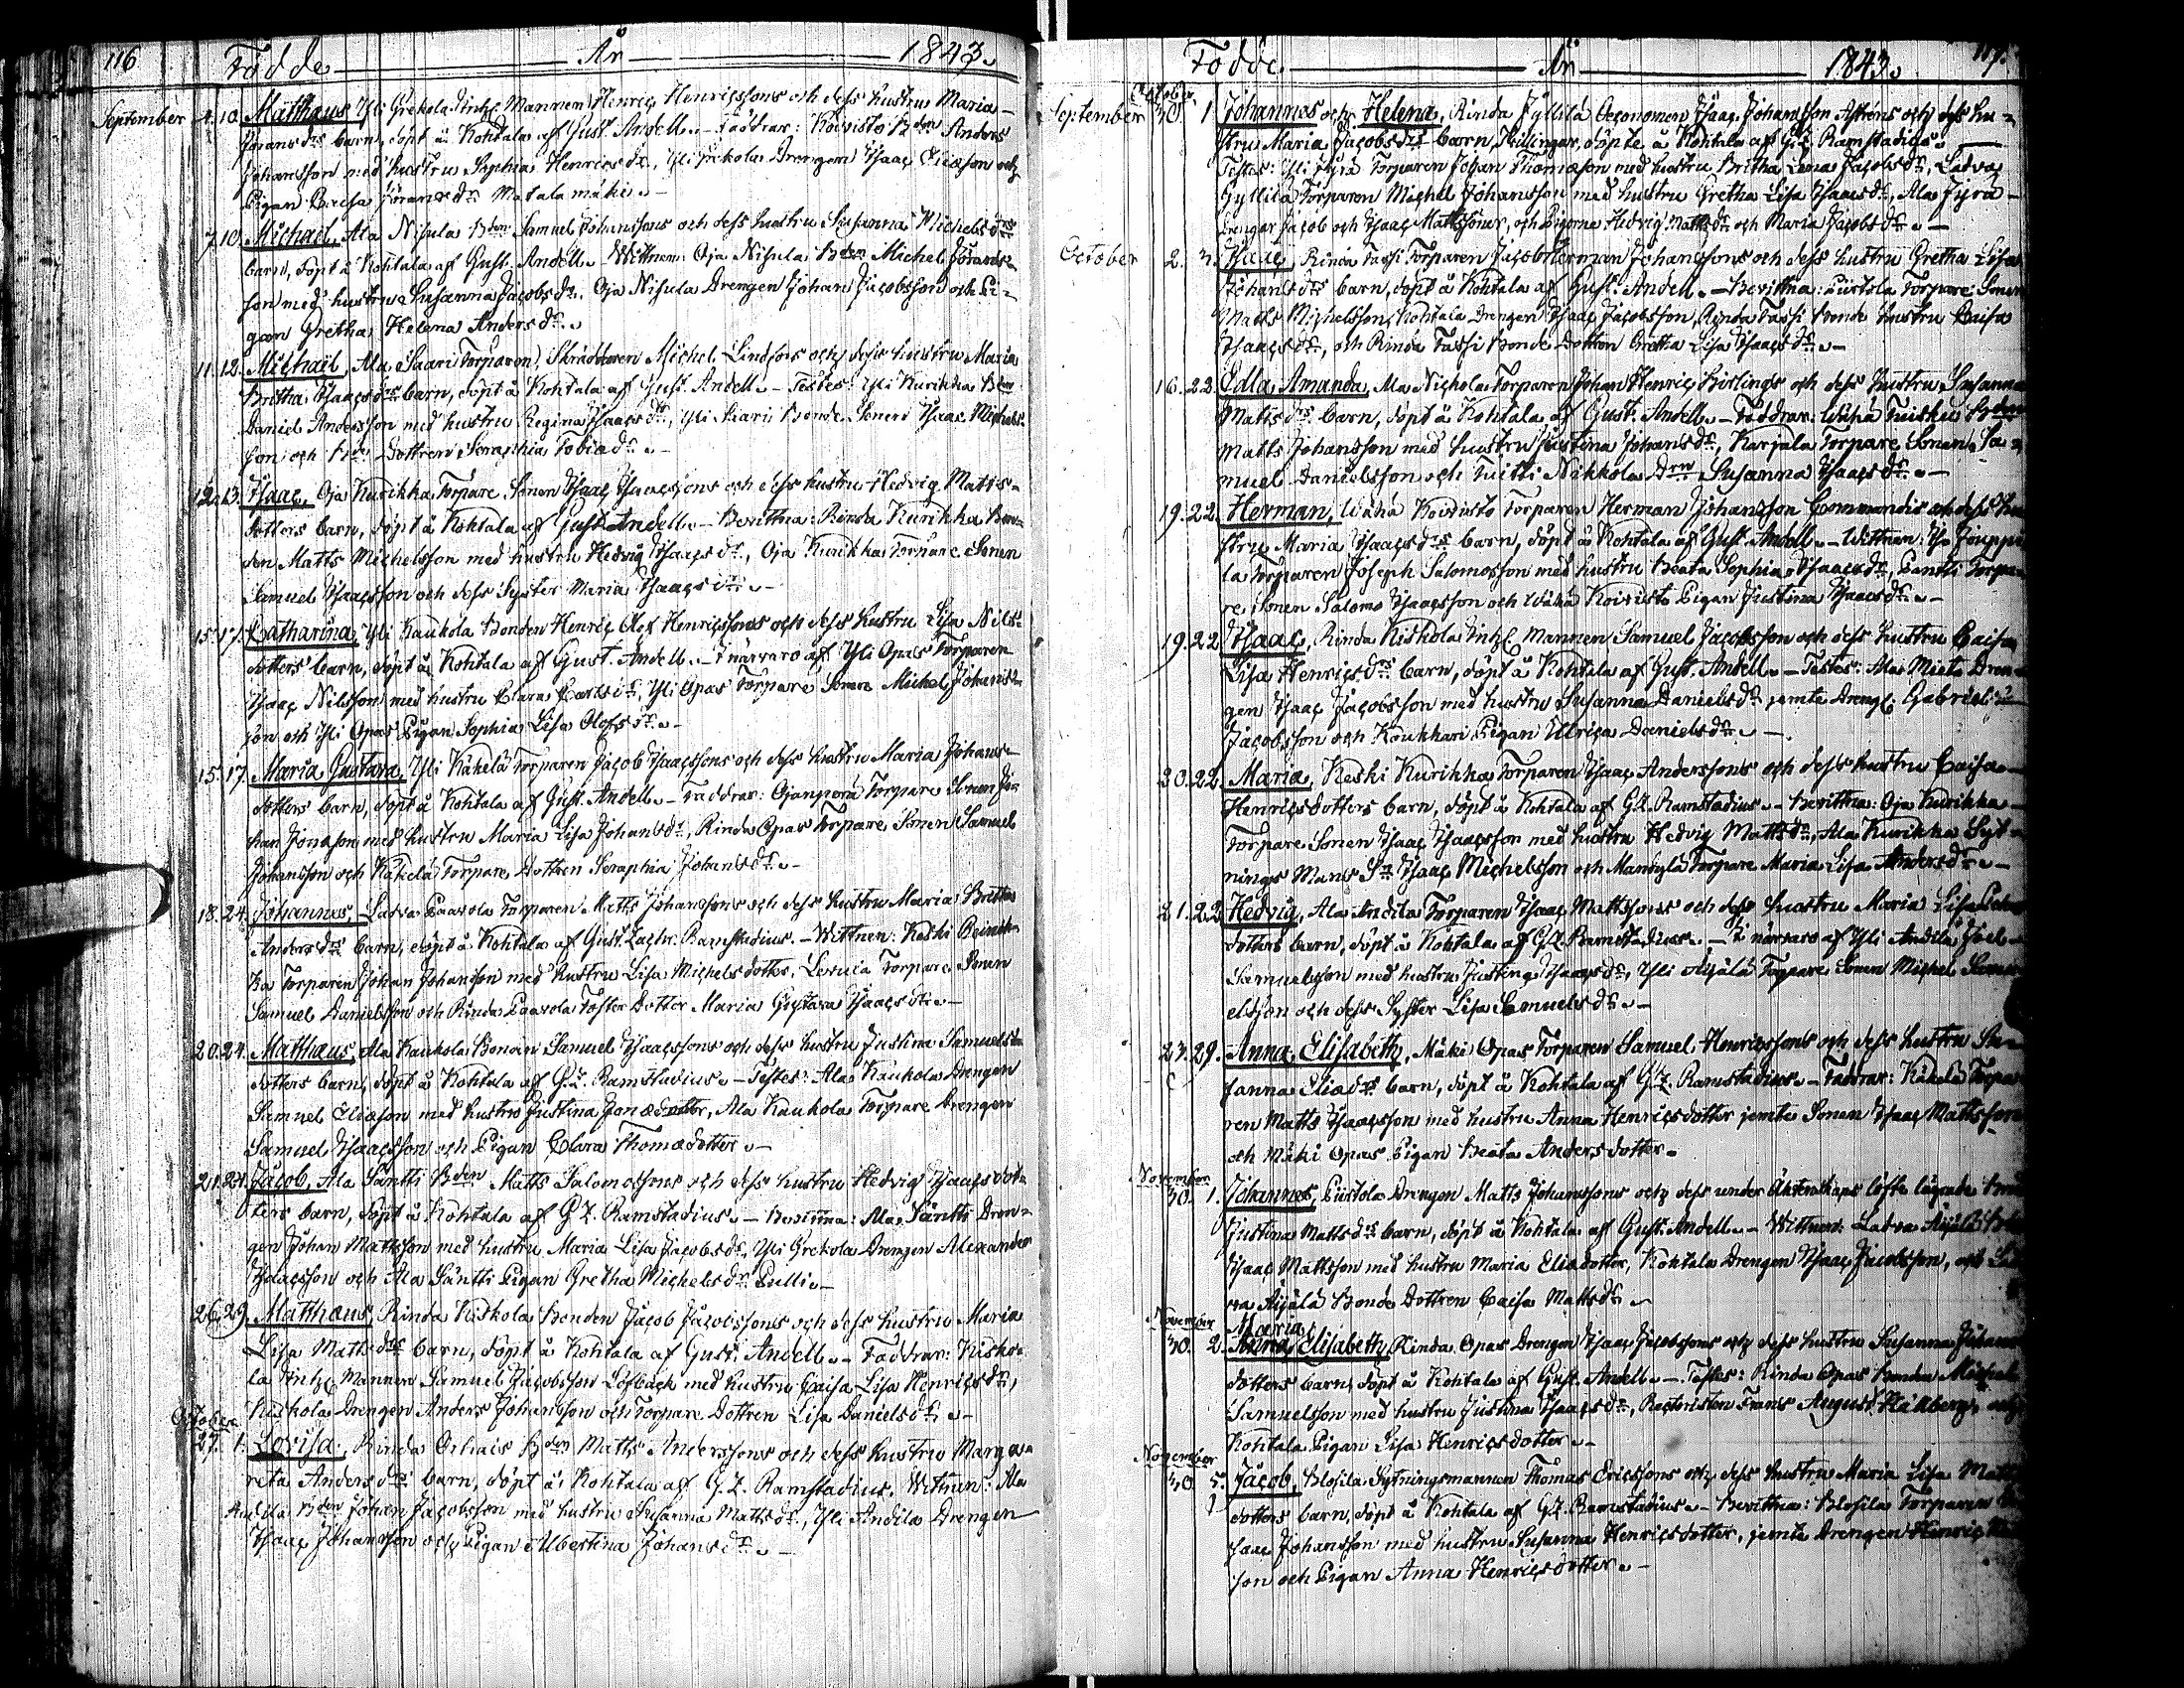 116 Födde År 1843.
September 4. 10. Matthæus, Yli Grekola Inhs Mannen Henric Henricssons och dess hustru Maria
Jöransdrs barn, döpt å Kohtala af Gust. Andell. – Faddrar: Koivisto Bden Anders
Johansson med hustru Sophia Henricsdr, Yli Grekola Drengen Isaac Eliæson och
Pigan Caisa Jöransdr Matala mäki. –
7. 10. Michael, Ala Nisula Bden Samuel Johanssons och dess hustru Susanna Michelsdrs
barn, döpt å Kohtala af Gust. Andell. – Wittnen: Oja Nisula Bden Michel Jörans-
son med hustru Susanna Jacobsdr, Oja Nisula Drengen Johan Jacobsson och Pi-
gan Gretha Helena Andersdr. –
11. 12. Michael, Ala Saari Torparen, Skräddaren Michel Lindfors och dess hustru Maria
Britha Isaacsdrs barn, döpt å Kohtala af Gust. Andell. – Testes: Yli Kurikka Bden
Daniel Andersson med hustru Regina Isaacsdr, Yli Saari Bonde Sonen Isaac Michels-
son och Dottren Seraphia Tobiædr. –
12. 13. Isaac, Oja Kurikka Torpare Sonen Isaac Isaacssons och dess hustru Hedvig Matts-
dotters barn, döpt å Kohtala af Gust. Andell. – Bevittna: Rinda Kurikka Bon-
den Matts Michelsson med hustru Hedvig Isaacsdr, Oja Kurikka Torpare Sonen
Samuel Isaacsson och dess Syster Maria Isaacsdr. –
15. 17. Catharina, Yli Kaukola Bonden Henric Olof Henricssons och dess hustru Lisa Nils-
dotters barn, döpt å Kohtala af Gust. Andell. – I närvaro af Yli Opas Torparen
Isaac Nilsson med hustru Clara Carlsdr, Yli Opas Torpare Sonen Michel Johans-
son och Yli Opas Pigan Sophia Lisa Olofsdr. –
15. 17. Maria Gustava, Yli Käkelä Torparen Jacob Isaacssons och dess hustru Maria Johans-
dotters barn, döpt å Kohtala af Gust. Andell. – Faddrar: Ojanperä Torpare Sonen Jo-
han Jonason med hustru Maria Lisa Johansdr, Rinda Opas Torpare Sonen Samuel
Johansson och Käkelä Torpare Dottren Seraphia Johansdr. –
18. 24. Johannes, Latva Paavola Torparen Matts Johanssons och dess hustru Maria Britha
Andersdrs barn, döpt å Kohtala af Gust. Zachr. Ramstadius. – Wittnen: Keski Reinik-
ka Torparen Johan Johansson med hustru Lisa Michelsdotter, Torpare Sonen
Samuel Danielsson och Rinda Paavola Foster Dotter Maria Gustava Isaacsdr. –
20. 24. Matthæus, Ala Kaukola Bonden Samuel Isaacssons och dess hustru Justina Samuels-
dotters barn, döpt å Kohtala af G. Z. Ramstadius. – Testes: Ala Kaukola Drengen
Samuel Eliæson med hustru Justina Jonædotter, Ala Kaukola Torpare Drengen
Samuel Isaacsson och Pigan Clara Thomædotter. –
21. 24. Jacob, Ala Säntti Bden Matts Salomossons och dess hustru Hedvig Isaacsdot-
ters barn, döpt å Kohtala af G. Z. Ramstadius. – Bevittna: Ala Säntti Dren-
gen Johan Mattsson med hustru Maria Lisa Jacobsdr, Yli Grekola Drengen Alexander
Isaacsson och Ala Säntti Pigan Gretha Michelsdr Pulli. –
26. 29. Matthæus, Rinda Kiskola Bonden Jacob Jacobssons och dess hustru Maria
Lisa Mattsdrs barn, döpt å Kohtala af Gust. Andell. – Faddrar: Kisko-
la Inhs Mannen Samuel Jacobsson Löfback med hustru Caisa Lisa Henricsdr,
Kiskola Drengen Anders Johansson och Torpare Dottren Lisa Danielsdr. –
October
27. 1. Lovisa, Rinda Orhais Bden Matts Anderssons och dess hustru Marga-
reta Andersdrs barn, döpt å Kohtala af G. Z. Ramstadius. Wittnen: Ala
Andila Bden Johan Jacobsson med hustru Susanna Mattsdr, Yli Andila Drengen
Isaac Johansson och Pigan Albertina Johansdr. –
Födde År 1843. 117.
October
September 30. 1. Johannes och Helena, Rinda Jyllilä Oeconomen Isaac Johansson Aströns och dess hu-
stru Maria Jacobsdrs barn, Tvillingar, döpte å Kohtala af G. Z. Ramstadius. –
Testes: Yli Jyrä Torparen Johan Thomæson med hustru Britha Lena Jacobsdr, Latva
Gyllilä Torparen Michel Johansson med hustru Gretha Lisa Isaacsdr, Ala Jyrä
Drengar Jacob och Isaac Mattssöner, och Pigorne Hedvig Mattsdr och Maria Jacobsdr. –
October 2. 3. Isaac, Rinda Tassi Torparen Jacob Herman Johanssons och dess hustru Gretha Lisa
Johansdrs barn, döpt å Kohtala af Gust. Andell. – Bevittna: Piirtola Torpare Sonen
Matts Michelsson, Kohtala Drengen Isaac Jacobsson, Rinda Tassi Bonde hustru Caisa
Isaacsdr, och Rinda Tassi Bonde Dottren Gretha Lisa Isaacsdr. –
16. 22. Edla Amanda, Ala Nichola Torparen Johan Henric Hirlings och dess hustru Susanna
Mattsdrs barn, döpt å Kohtala af Gust. Andell. – Faddrar: Wähä Tuisku Bden
Matts Johansson med hustru Justina Johansdr, Karjala Torpare Sonen Sa-
muel Danielsson och Luitti Nikkola Drn Susanna Isaacsdr. –
19. 22. Herman, Wähä Koivisto Torparen Herman Johansson Commondis och dess hu-
stru Maria Isaacsdrs barn, döpt å Kohtala af Gust. Andell. – Wittnen: Iso Jouppi-
la Torparen Joseph Salomosson med hustru Beata Sophia Isaacsdr, Pantti Torpa-
re Sonen Salomo Isaacsson och Wähä Koivisto Pigan Justina Isaacsdr. –
19. 22. Isaac, Rinda Kiskola Inhs Mannen Samuel Jacobsson och dess hustru Caisa
Lisa Henricsdrs barn, döpt å Kohtala af Gust. Andell. – Testes: Ala Mieto Dren-
gen Isaac Jacobsson med hustru Susanna Danielsdr, jemte Drengn Gabriel
Jacobsson och Koukkari Pigan Ulrica Danielsdr. –
20. 22. Maria, Keski Kurikka Torparen Isaac Anderssons och dess hustru Caisa
Henricsdotters barn, döpt å Kohtala af G. Z. Ramstadius. – Bevittna: Oja Kurikka
Torpare Sonen Isaac Isaacsson med hustru Hedvig Mattsdr, Ala Kurikka Syt-
nings Mans Sn Isaac Michelsson och Mandylä Torpare Maria Lisa Andersdr. –
21. 22. Hedvig, Ala Andila Torparen Isaac Mattssons och dess hustru Maria Lisa
dotters barn, döpt å Kohtala af G. Z. Ramstadius. – I närvaro af Yli Andila Joel
Samuelsson med hustru Justina Isaacsdr, Yli Äijälä Torpare Sonen Michel Samu-
elsson och dess Syster Lisa Samuelsdr. –
23. 29. Anna Elisabeth, Mäki Opas Torparen Samuel Henricssons och dess hustru Su-
sanna Eliædrs barn, döpt å Kohtala af G. Z. Ramstadius. – Faddrar: Käkelä Torpa-
ren Matts Isaacsson med hustru Anna Henricsdotter jemte Sonen Isaac Mattsson
och Mäki Opas Pigan Beata Andersdotter.
November
30. 1. Johannes, Piirtola Drengen Matts Johanssons och dess under Äktenskaps löfte lägrade
Justina Mattsdrs barn, döpt å Kohtala af Gust. Andell. – Wittnen: Latva Äijälä
Isaac Mattsson med hustru Maria Eliædotter, Kohtala Drengen Isaac Jacobsson, och Lat-
va Äijälä Bonde Dottren Caisa Mattsdr. –
November Maria
30. 2. Anna Elisabeth, Rinda Opas Drengen Isaac Jacobssons och dess hustru Susanna Johans-
dotters barn, döpt å Kohtala af Gust. Andell. – Testes: Rinda Opas Bonden Michel
Samuelsson med hustru Justina Isaacsdr, Frans August och
Kohtala Pigan Lisa Henricsdotter. –
November
30. 5. Jacob, Blosila Sytningsmannen Thomas Ericssons och dess hustru Maria Lisa Matts-
dotters barn, döpt å Kohtala af G. Z. Ramstadius. – Bevittna: Blosila Torparen
saac Johansson med hustru Susanna Henricsdotter, jemte Drengen Henric
son och Pigan Anna Henricsdotter. –